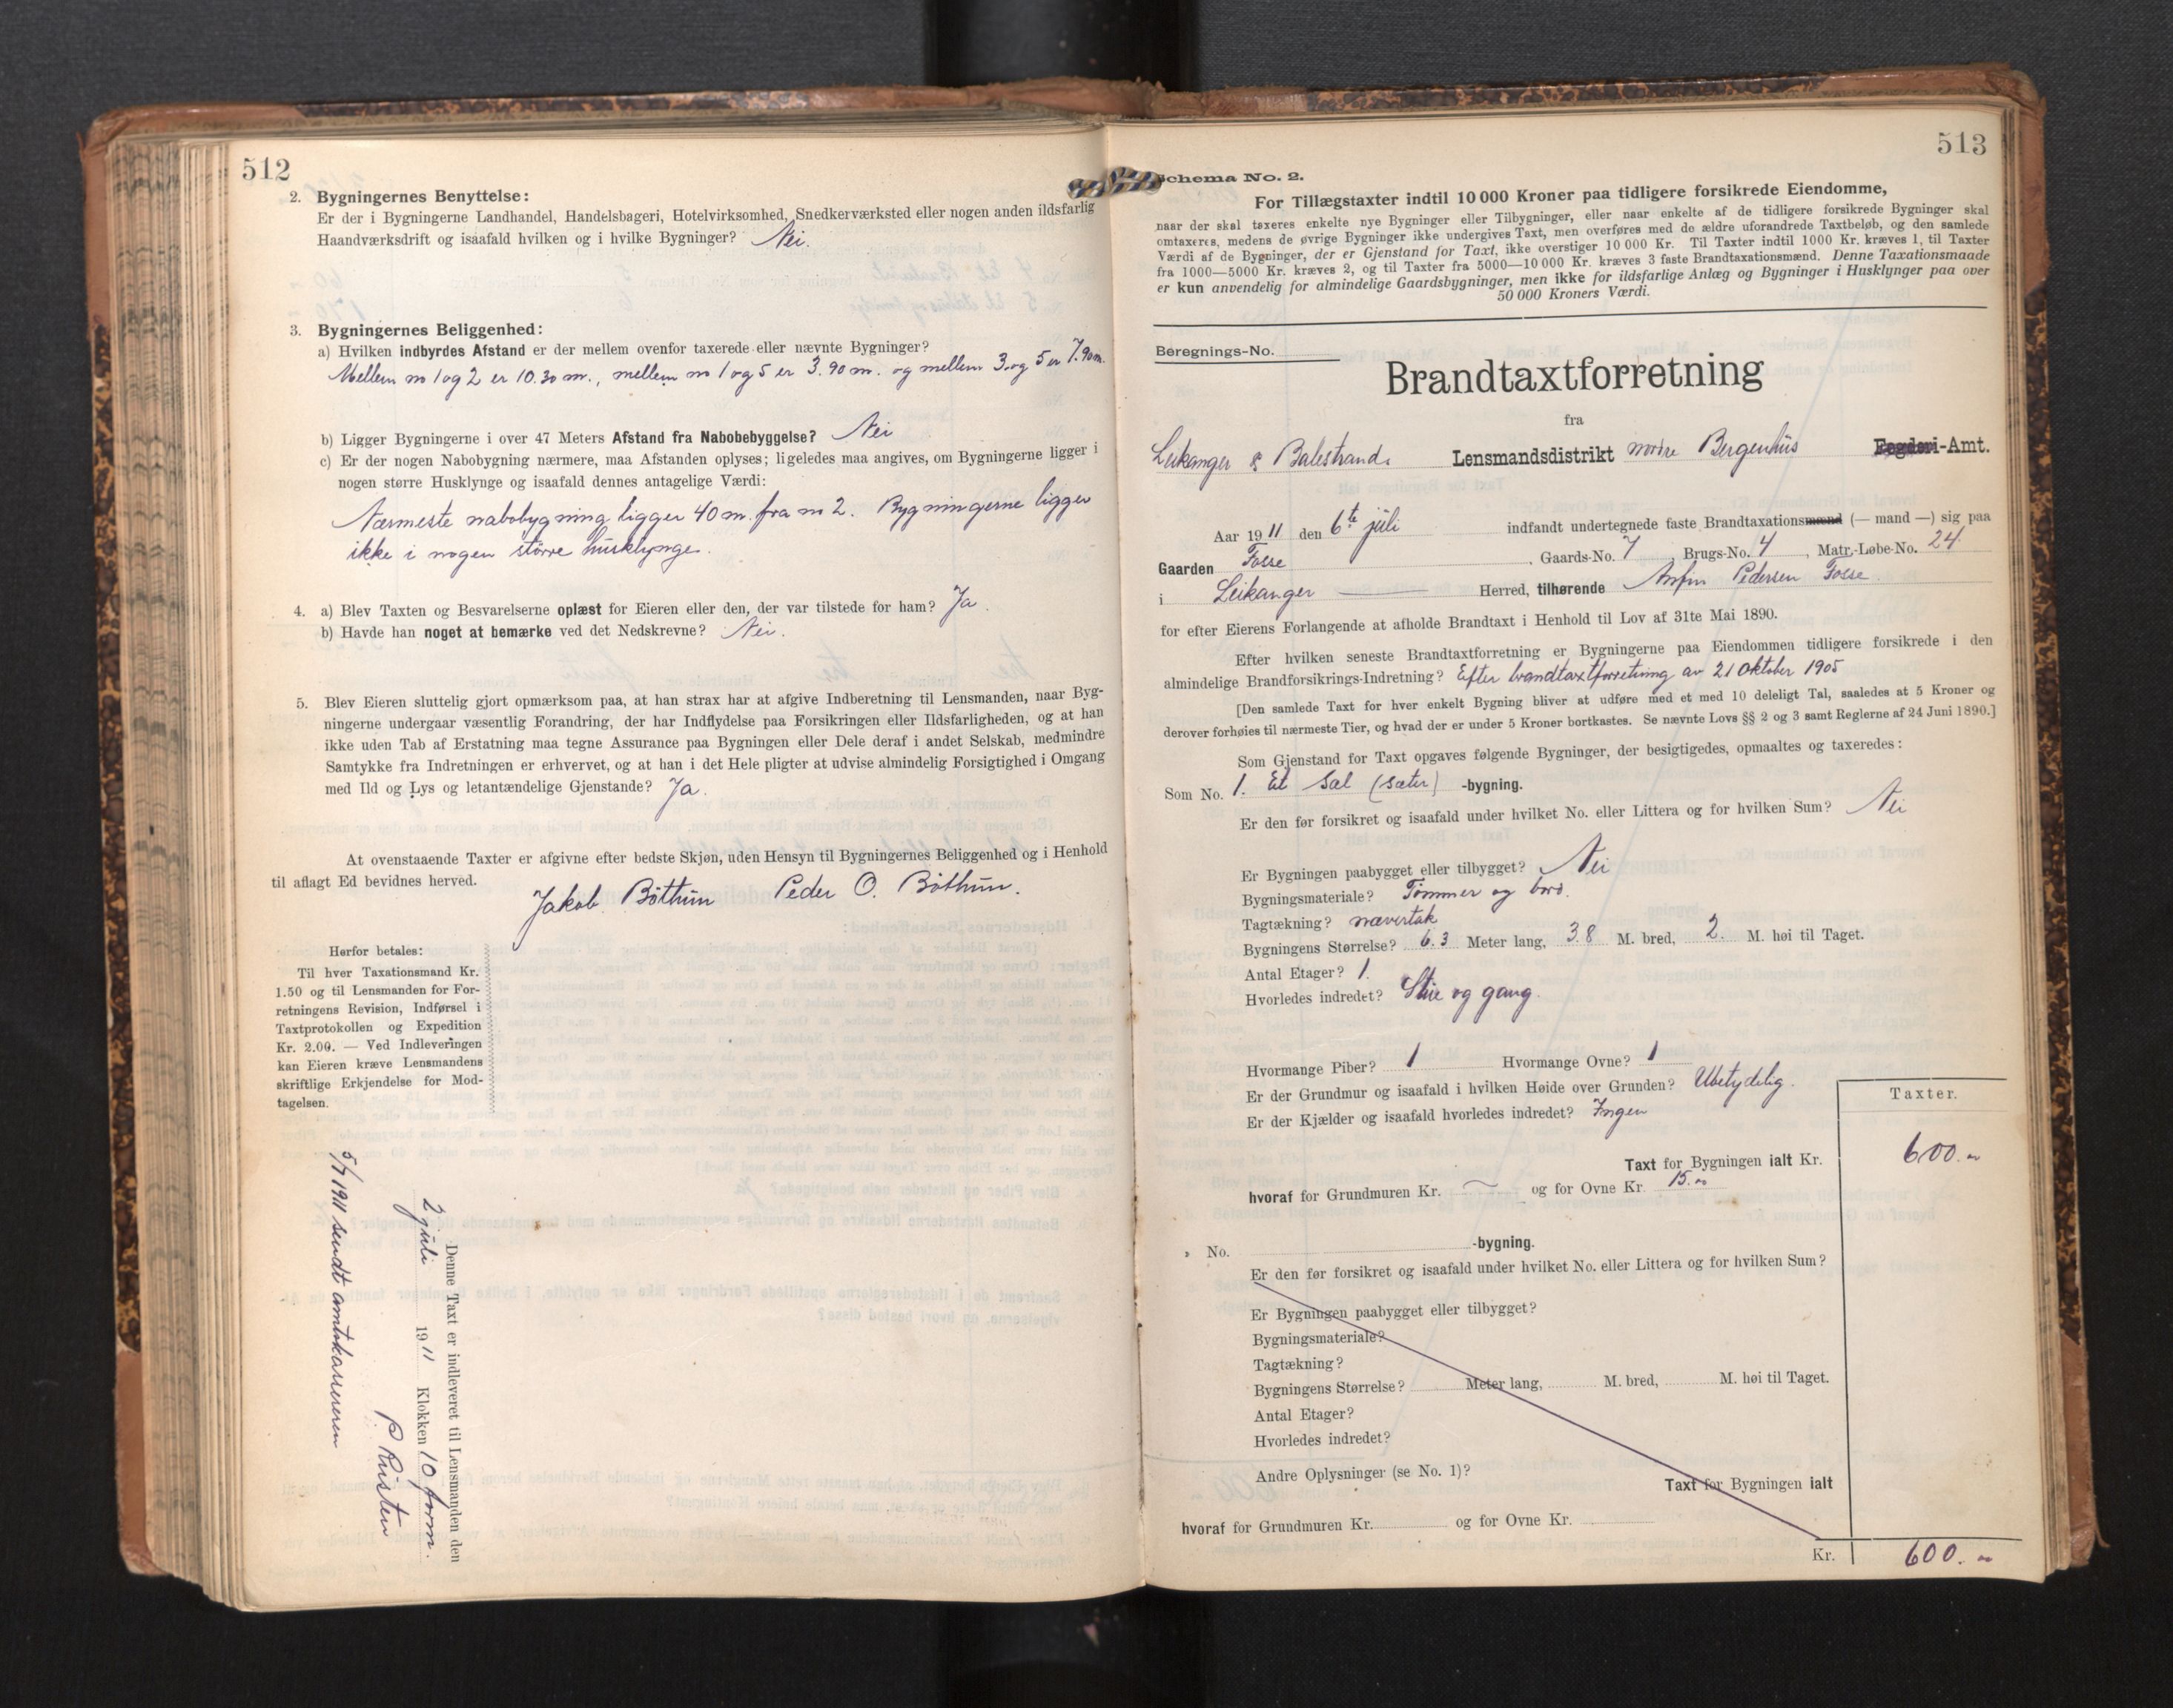 512
2. Bygningernes Benyttelse:
Er der i Bygningerne Landhandel, Handelsbageri, Hotelvirksomhed, Snedkerværksted eller nogen anden ildsfarlig
Haandværksdrift og isaafald hvilken og i hvilke Bygninger? Nei.
3. Bygningernes Beliggenhed:
a) Hvilken indbyrdes Afstand er der mellem ovenfor taxerede eller nævnte Bygninger?
Mellem no 1 og 2 er 10.30 m., mellem no 1 og 5 er 3.90 m. og mellem 3 og 5 er 7.90 m.
b) Ligger Bygningerne i over 47 Meters Afstand fra Nabobebyggelse? Nei
c) Er der nogen Nabobygning nærmere, maa Afstanden oplyses; ligeledes maa angives, om Bygningerne ligger i
nogen større Husklynge og isaafald dennes antagelige Værdi:
Nærmeste nabobygning ligger 40 m. fra no 2. Bygningerne ligger
ikke i nogen större husklynge.
4. a) Blev Taxten og Besvarelserne oplæst for Eieren eller den, der var tilstede for ham? Ja.
b) Havde han noget at bemærke ved det Nedskrevne? Nei.
5. Blev Eieren sluttelig gjort opmærksom paa, at han strax har at afgive Indberetning til Lensmanden, naar Byg-
ningerne undergaar væsentlig Forandring, der har Indflydelse paa Forsikringen eller Ildsfarligheden, og at han
ikke uden Tab af Erstatning maa tegne Assurance paa Bygningen eller Dele deraf i andet Selskab, medmindre
Samtykke fra Indretningen er erhvervet, og at han i det Hele pligter at udvise almindelig Forsigtighed i Omgang
med Ild og Lys og letantændelige Gjenstande? Ja.
At ovenstaaende Taxter er afgivne efter bedste Skjøn, uden Hensyn til Bygningernes Beliggenhed og i Henhold
til aflagt Ed bevidnes herved.
Jakob Böthun Peder O. Böthun.
Herfor betales:
Til hver Taxationsmand Kr.
1.50 og til Lensmanden for For-
retningens Revision, Indførsel i
Taxtprotokollen og Expedition
Kr. 2.00. — Ved Indleveringen
kan Eieren kræve Lensmandens
skriftlige Erkjendelse for Mod-
tagelsen.
Denne Taxt er indleveret til Lensmanden den
2 juli 1911 Klokken 10 form.
P Risten
5/7 1911 sendt amtskassereren
513
Schema No. 2.
For Tillægstaxter indtil 10 000 Kroner paa tidligere forsikrede Eiendomme,
naar der skal taxeres enkelte nye Bygninger eller Tilbygninger, eller naar enkelte af de tidligere forsikrede Bygninger skal
omtaxeres, medens de øvrige Bygninger ikke undergives Taxt, men overføres med de ældre uforandrede Taxtbeløb, og den samlede
Værdi af de Bygninger, der er Gjenstand for Taxt, ikke overstiger 10 000 Kr. Til Taxter indtil 1000 Kr. kræves 1, til Taxter
fra 1000—5000 Kr. kræves 2, og til Taxter fra 5000—10 000 Kr. kræves 3 faste Brandtaxationsmænd. Denne Taxationsmaade
er kun anvendelig for almindelige Gaardsbygninger, men ikke for ildsfarlige Anlæg og Bygninger i Husklynger paa over
50 000 Kroners Værdi.
Beregnings-No.
Brandtaxtforretning
fra
Leikanger & Balestrands Lensmandsdistrikt nordre Bergenhus Fogderi-Amt.
Aar 1911 den 6te juli indfandt undertegnede faste Brandtaxationsmænd (— mand —) sig paa
Gaarden Fosse, Gaards-No. 7, Brugs-No. 4, Matr.-Løbe-No. 24
i Leikanger Herred, tilhørende Anfin Pedersen Fosse
for efter Eierens Forlangende at afholde Brandtaxt i Henhold til Lov af 31te Mai 1890.
Efter hvilken seneste Brandtaxtforretning er Bygningerne paa Eiendommen tidligere forsikrede i den
almindelige Brandforsikrings-Indretning? Efter brandtaxtforretning av 21 oktober 1905
[Den samlede Taxt for hver enkelt Bygning bliver at udføre med et med 10 deleligt Tal, saaledes at 5 Kroner og
derover forhøies til nærmeste Tier, og hvad der er under 5 Kroner bortkastes. Se nævnte Lovs §§ 2 og 3 samt Reglerne af 24 Juni 1890.]
Som Gjenstand for Taxt opgaves følgende Bygninger, der besigtigedes, opmaaltes og taxeredes:
Som No. 1. Et Sæl (sæter) -bygning.
Er den før forsikret og isaafald under hvilket No. eller Littera og for hvilken Sum? Nei
Er Bygningen paabygget eller tilbygget? Nei
Bygningsmateriale? Tömmer og bord.
Tagtækning? nævertak
Bygningens Størrelse? 6.3 Meter lang, 3.8 M. bred, 2. M. høi til Taget.
Antal Etager? 1.
Hvorledes indredet? Stue og gang.
Hvormange Piber? 1 Hvormange Ovne? 1
Er der Grundmur og isaafald i hvilken Høide over Grunden? Ubetydelig.
Er der Kjælder og isaafald hvorledes indredet? Ingen
Taxter.
Taxt for Bygningen ialt Kr. 600.-
hvoraf for Grundmuren Kr. ~ og for Ovne Kr. 15.-
» No. -bygning.
Er den før forsikret og isaafald under hvilket No. eller Littera og for hvilken Sum?
Er Bygningen paabygget eller tilbygget?
Bygningsmateriale?
Tagtækning?
Bygningens Størrelse? Meter lang, M. bred, M. høi til Taget.
Antal Etager?
Hvorledes indredet?
Andre Oplysninger (se No. 1)?
Taxt for Bygningen ialt
hvoraf for Grundmuren Kr. og for Ovne Kr.
Kr. 600.-